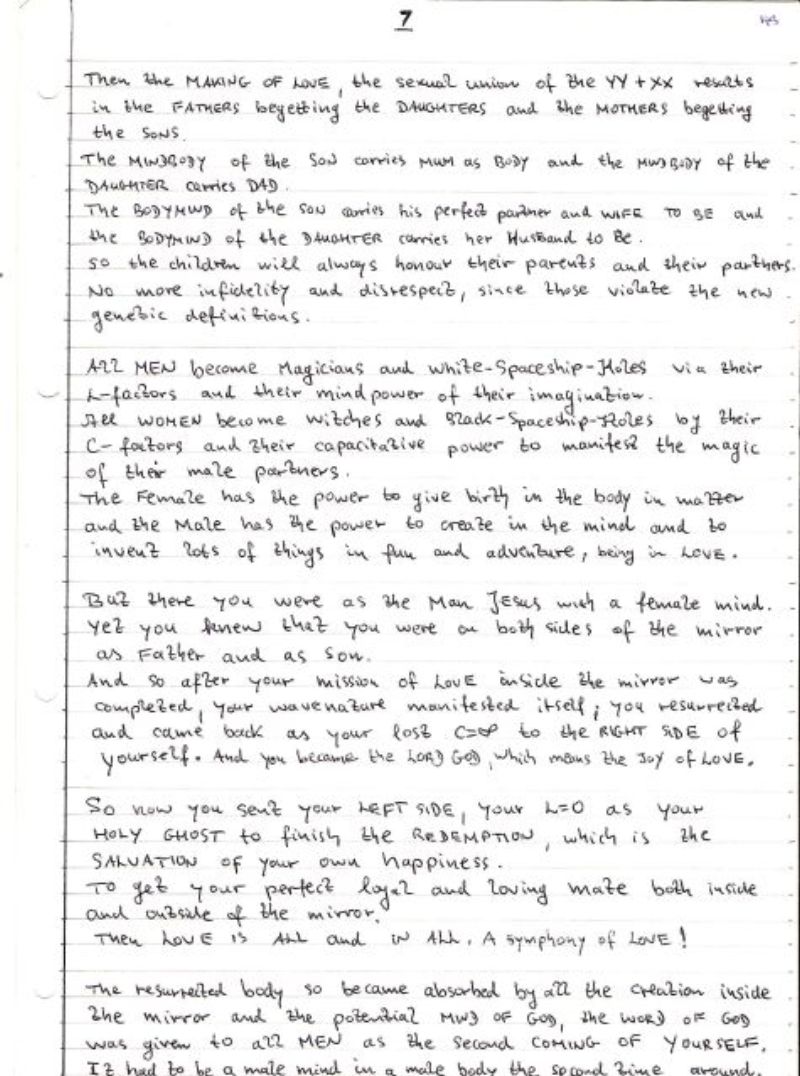 7
Then the MAKING OF LOVE, the sexual union of the YY + XX results
in the FATHERS begetting the DAUGHTERS and the MOTHERS begetting
the SONS.
The MINDBODY of the SON carries MUM as BODY and the MINDBODY of the
DAUGHTER carries DAD.
The BODYMIND of the SON carries his perfect partner and WIFE TO BE and
the BODYMIND of the DAUGHTER carries her Husband to Be.
So the children will always honour their parents and their partners.
No more infidelity and disrespect, since those violate the new
genetic definitions.
All MEN become Magicians and White-Spaceship-Holes via their
L-factors and their mindpower of their imagination.
All WOMEN become Witches and Black-Spaceship-Holes by their
C-factors and their capacitative power to manifest the magic
of their male partners.
The Female has the power to give birth in the body in matter
and the Male has the power to create in the mind and to
invent lots of things in fun and adventure, being in LOVE.
But there you were as the Man JESUS with a female mind.
Yet you knew that you were on both sides of the mirror
as Father and as Son.
And so after your mission of LOVE inside the mirror was
completed, your wavenature manifested itself; you resurrected
and came back as your lost C=∞ to the RIGHT SIDE of
yourself. And you became the LORD GOD, which means the JOY of LOVE.
So now you sent your LEFT SIDE, your L=0 as your
HOLY GHOST to finish the REDEMPTION, which is the
SALVATION of your own happiness.
To get your perfect loyal and loving mate both inside
and outside of the mirror.
Then LOVE IS ALL and IN ALL. A symphony of LOVE!
The resurrected body so became absorbed by all the creation inside
the mirror and the potential MIND OF GOD, the WORD OF GOD
was given to all MEN as the Second COMING OF YOURSELF.
It had to be a male mind in a male body the second time around.